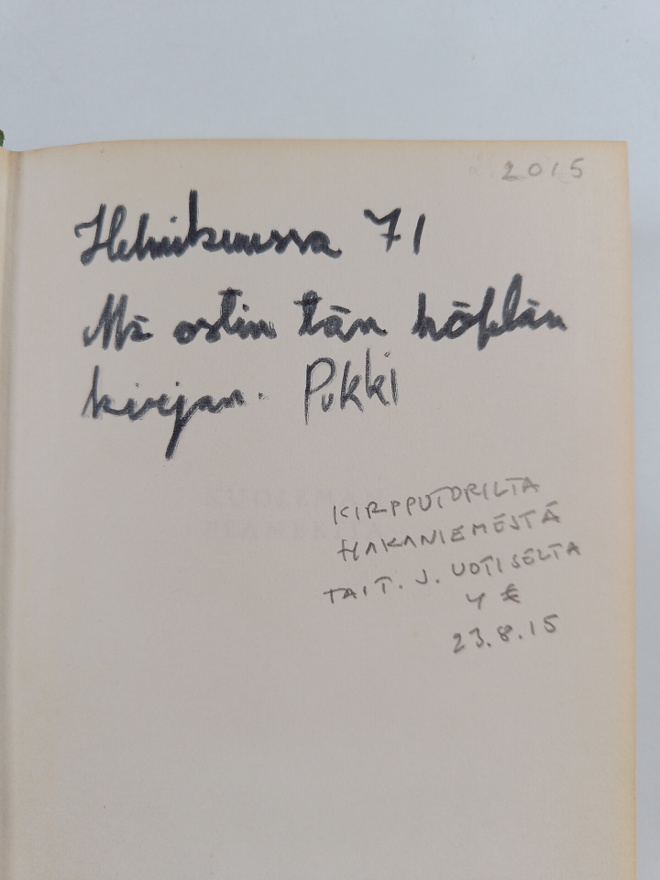 2015
Helmikuussa 71
Mä ostin tän höplän
kirjan. Pukki
KIRPPUTORILTA
HAKANIEMESTÄ
TAIT. J. UOTISELTA
4 €
23.8.15
KUOLEMAN